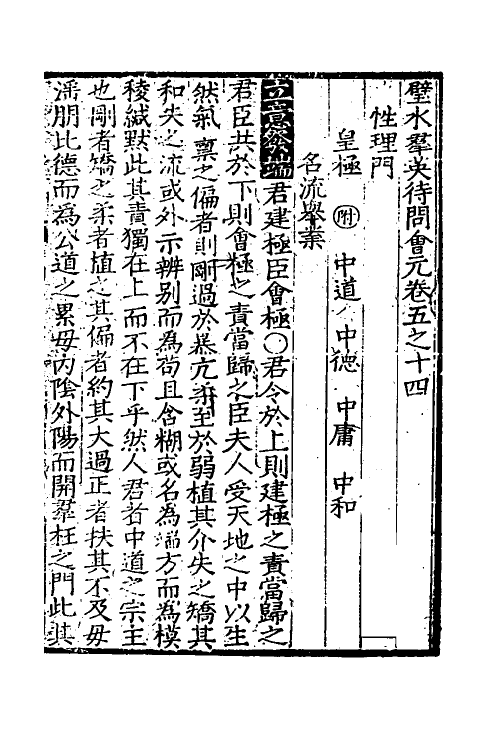 璧水羣英待問會元卷五之十四
性理門
皇極 附 中道 中德 中庸 中和
名流舉業
立意發端 君建極臣會極○君令於上則建極之責當歸之
君臣共於下則會極之責當歸之臣夫人受天地之中以生
然氣稟之偏者則剛過於暴亢柔至於弱植其介失之矯其
和失之流或外示辨别而為苟且含糊或名為端方而為模
稜緘默此其責獨在上而不在下乎然人君者中道之宗主
也剛者矯之柔者植之其偏者約其大過正者扶其不及毋
淫朋比德而為公道之累毋内陰外陽而開羣枉之門此其